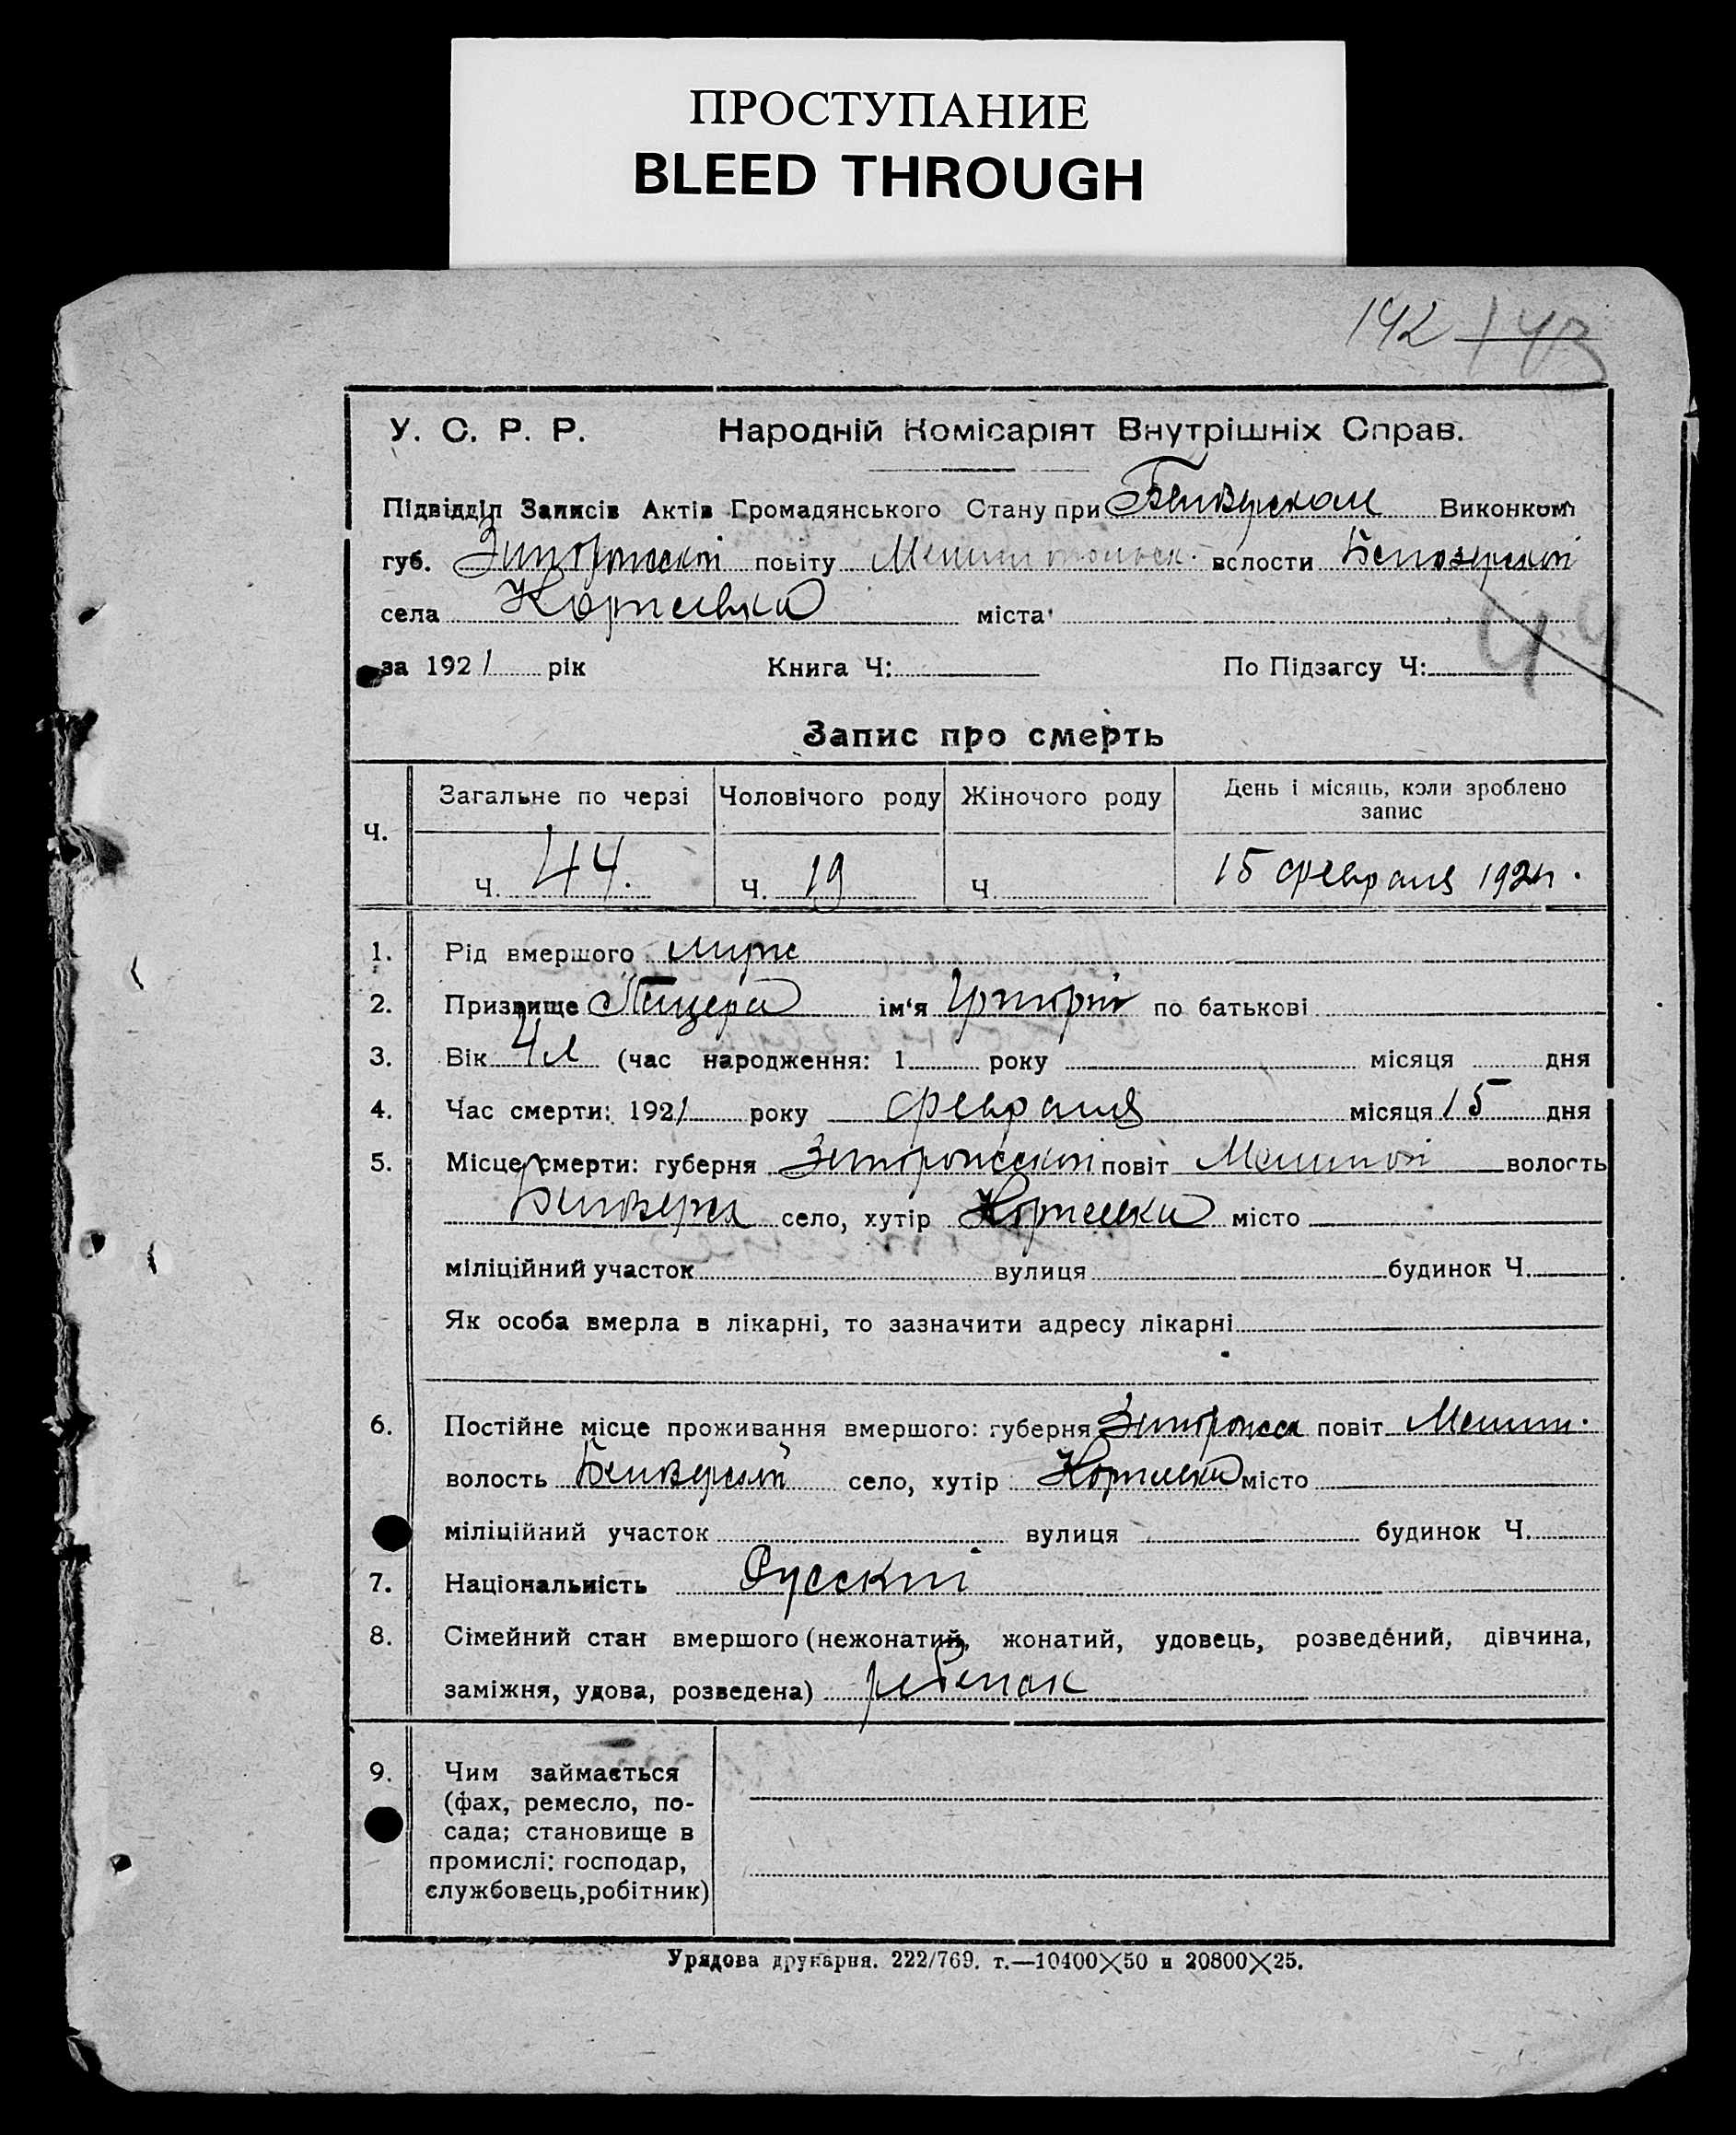 ПРОСТУПАНИЕ
BLEED THROUGH
142 143
У. С. Р. Р. Народній Комісаріят Внутрішніх Справ.
Підвідділ Записів Актів Громадянського Стану при Виконкомі
губ. повіту волости Белозерской
села міста
44
за 1921 рік Книга Ч: По Підзагсу Ч:
Запис про смерть
Ч. Загальне по черзі Чоловічого роду Жіночого роду День і місяць, коли зроблено запис
Ч. 44. Ч. 19 Ч. 15 февраля 1921 г.
1. Рід вмершого муж
2. Призвище Пащера ім‘я Григорій по батькові
3. Вік 4 л (час народження: 1 року місяця дня
4. Час смерти: 1921 року февраля місяця 15 дня
5. Місце смерти: губерня повіт Мелитоп волость
село, хутір місто
міліційний участок вулиця будинок Ч.
Як особа вмерла в лікарні, то зазначити адресу лікарні
6. Постійне місце проживання вмершого: губерня повіт Мелит.
волость село, хутір місто
міліційний участок вулиця будинок Ч.
7. Національність Русскій
8. Сімейний стан вмершого (нежонатий, жонатий, удовець, розведений, дівчина,
заміжня, удова, розведена) ребенок
9. Чим займається
(фах, ремесло, по-
сада; становище в
промислі: господар,
службовець, робітник)
Урядова друкарня. 222/769. т.—10400×50 и 20800×25.